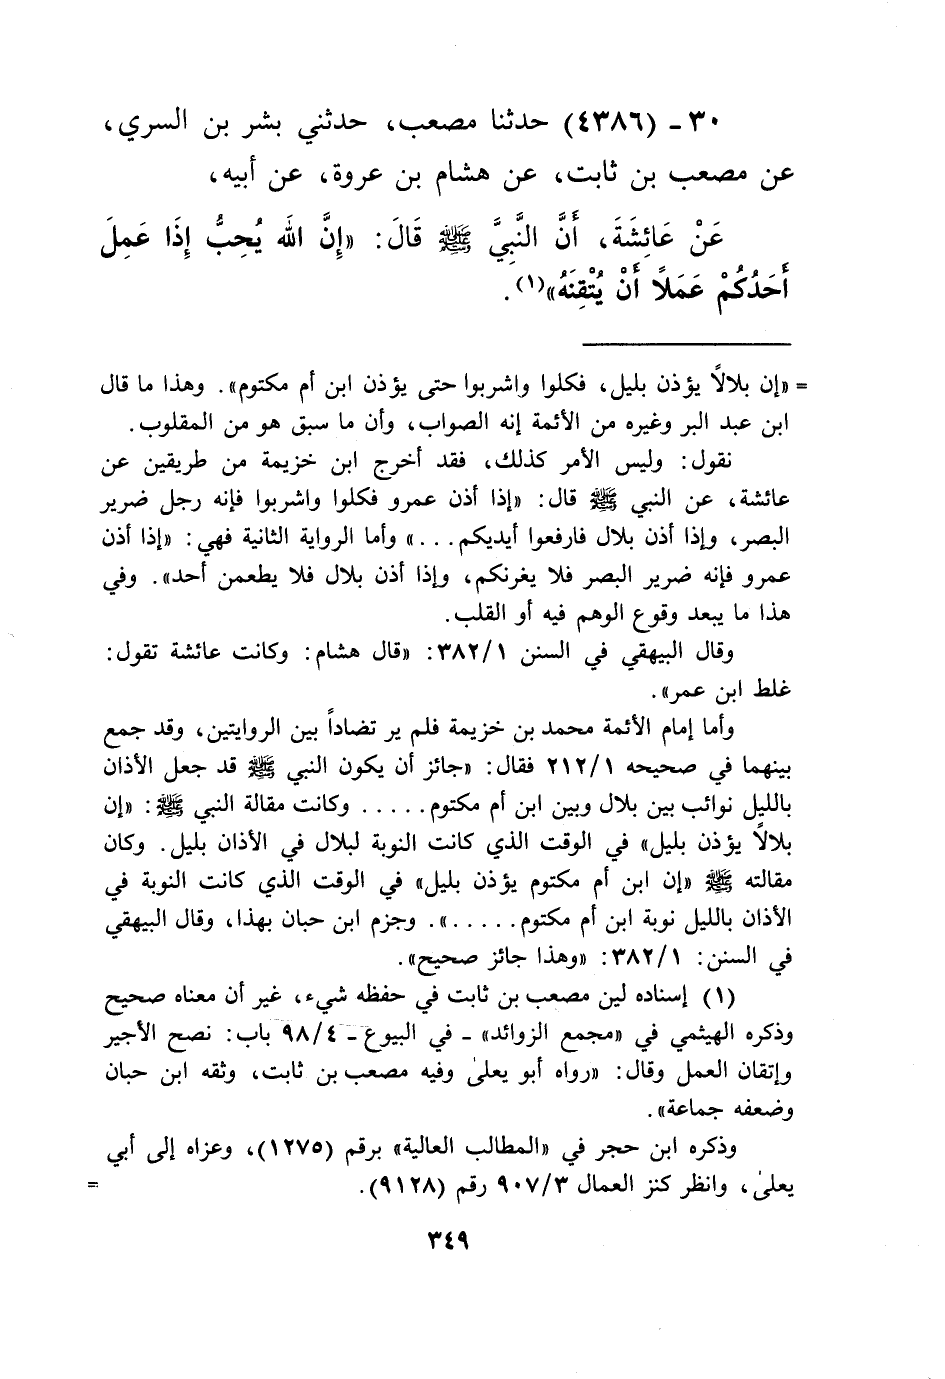 ٣٠ - (٤٣٨٦) حدثنا مصعب، حدثني بشر بن السري،
عن مصعب بن ثابت، عن هشام بن عروة، عن أبيه،
عَنْ عَائِشَةَ، أَنَّ النَّبِيَّ ﷺ قَالَ: «إِنَّ اللهَ يُحِبُّ إِذَا عَمِلَ
أَحَدُكُمْ عَمَلاً أَنْ يُتْقِنَهُ»(١).
= «إن بلالاً يؤذن بليل، فكلوا واشربوا حتى يؤذن ابن أم مكتوم». وهذا ما قال
ابن عبد البر وغيره من الأئمة إنه الصواب، وأن ما سبق هو من المقلوب.
نقول: وليس الأمر كذلك، فقد أخرج ابن خزيمة من طريقين عن
عائشة، عن النبي ﷺ قال: «إذا أذن عمرو فكلوا واشربوا فإنه رجل ضرير
البصر، وإذا أذن بلال فارفعوا أيديكم...» وأما الرواية الثانية فهي: «إذا أذن
عمرو فإنه ضرير البصر فلا يغرنكم، وإذا أذن بلال فلا يطعمن أحد». وفي
هذا ما يبعد وقوع الوهم فيه أو القلب.
وقال البيهقي في السنن ٣٨٢/١: «قال هشام: وكانت عائشة تقول:
غلط ابن عمر».
وأما إمام الأئمة محمد بن خزيمة فلم ير تضاداً بين الروايتين، وقد جمع
بينهما في صحيحه ٢١٢/١ فقال: «جائز أن يكون النبي ﷺ قد جعل الأذان
بالليل نوائب بين بلال وبين ابن أم مكتوم..... وكانت مقالة النبي ﷺ: «إن
بلالاً يؤذن بليل» في الوقت الذي كانت النوبة لبلال في الأذان بليل. وكان
مقالته ﷺ «إن ابن أم مكتوم يؤذن بليل» في الوقت الذي كانت النوبة في
الأذان بالليل نوبة ابن أم مكتوم.....». وجزم ابن حبان بهذا، وقال البيهقي
في السنن: ٣٨٢/١: «وهذا جائز صحيح».
(١) إسناده لين مصعب بن ثابت في حفظه شيء، غير أن معناه صحيح
وذكره الهيثمي في «مجمع الزوائد» - في البيوع - ٩٨/٤ باب: نصح الأجير
وإتقان العمل وقال: «رواه أبو يعلىٰ وفيه مصعب بن ثابت، وثقه ابن حبان
وضعفه جماعة».
وذكره ابن حجر في «المطالب العالية» برقم (١٢٧٥)، وعزاه إلى أبي
يعلىٰ، وانظر كنز العمال ٩٠٧/٣ رقم (٩١٢٨). =
٣٤٩